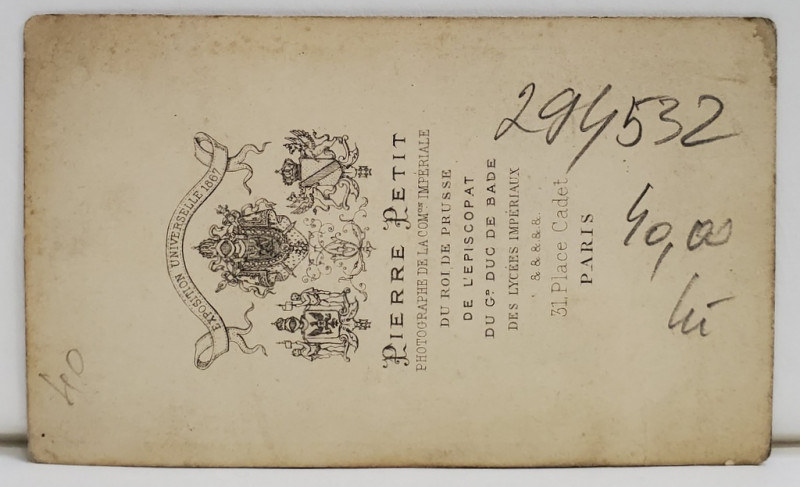 EXPOSITION UNIVERSELLE.1867
PIERRE PETIT
PHOTOGRAPHE DE LA COMON IMPÉRIALE
DU ROI DE PRUSSE
DE L'EPISCOPAT
DU GD DUC DE BADE
DES LYCÉES IMPÉRIAUX
& & & & &.
31, Place Cadet
PARIS
294532
40,00
40